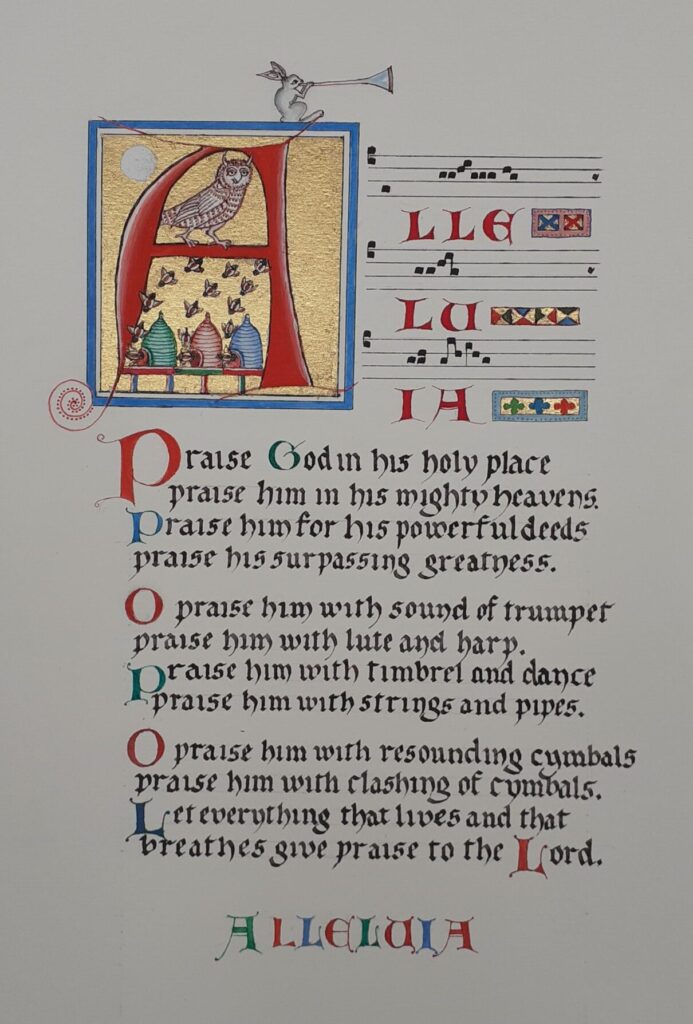 A
LLE
LU
IA
Praise God in his holy place
praise him in his mighty heavens.
Praise him for his powerful deeds
praise his surpassing greatness.
O praise him with sound of trumpet
praise him with lute and harp.
Praise him with timbrel and dance
praise him with strings and pipes.
O praise him with resounding cymbals
praise him with clashing of cymbals.
Let everything that lives and that
breathes give praise to the Lord.
ALLELUIA